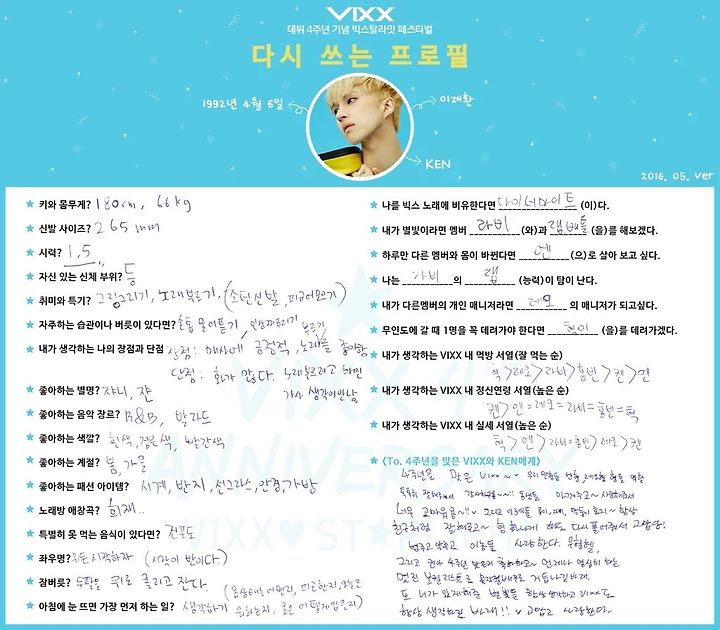 VIXX
데뷔 4주년 기념 빅스탈라잇 페스티벌
다시 쓰는 프로필
1992년 4월 6일
이재환
KEN
2016. 05. ver
★ 키와 몸무게? 180cm, 66kg
★ 신발 사이즈? 265mm
★ 시력? 1.5
★ 자신 있는 신체 부위? 등
★ 취미와 특기? 그림그리기, 노래부르기, (조던신발, 피규어모으기)
★ 자주하는 습관이나 버릇이 있다면? 손톱 물어뜯기, 인상찌푸리기
부르기
★ 내가 생각하는 나의 장점과 단점 장점 : 매사에 긍정적, 노래를 좋아함
단점 : 화가 많다. 노래부르려고 하면
가사 생각이 안남
★ 좋아하는 별명? 쟈니, 쟌
★ 좋아하는 음악 장르? R&B, 발라드
★ 좋아하는 색깔? 흰색, 검은색, 빨간색
★ 좋아하는 계절? 봄, 가을
★ 좋아하는 패션 아이템? 시계, 반지, 선그라스, 안경, 가방
★ 노래방 애창곡? 희재..
★ 특별히 못 먹는 음식이 있다면? 번데기
★ 좌우명? 시작하자 (시작이 반이다.)
★ 잠버릇? 두팔을 위로 올리고 잔다.
★ 아침에 눈 뜨면 가장 먼저 하는 일? 생각하기
(몸상태는 어떤지, 피곤한지, 오늘은
목은 어떻게 됐는지)
★ 나를 빅스 노래에 비유한다면 다이너마이트 (이)다.
★ 내가 별빛이라면 멤버 라비 (와)과 랩배틀 (을)를 해보겠다.
★ 하루만 다른 멤버와 몸이 바뀐다면 엔 (으)로 살아 보고 싶다.
★ 나는 라비 의 랩 (능력)이 탐이 난다.
★ 내가 다른멤버의 개인 매니저라면 레오 의 매니저가 되고싶다.
★ 무인도에 갈 때 1명을 꼭 데려가야 한다면 혁이 (을)를 데려가겠다.
★ 내가 생각하는 VIXX 내 먹방 서열(잘 먹는 순)
혁>레오>라비>홍빈>켄>엔
★ 내가 생각하는 VIXX 내 정신연령 서열(높은 순)
켄>엔=레오=라비=홍빈=혁
★ 내가 생각하는 VIXX 내 실세 서열(높은 순)
혁>엔>라비=홍빈>레오>켄
★ <To. 4주년을 맞은 VIXX와 KEN에게>
4주년을 맞은 Vixx~~ 우리
감사해용~~!!
너무 고마워용~!!
친구처럼 잘해주고~
이놈들 사랑한다.
그리고 켄아 4주년 언제나 열심히 하는
멋진 보컬리스트로 거듭나길 바래.
또 너가 별빛들 항상 생각하고 VIXX도
항상 생각하길 바래!! ♥ 고맙고 사랑한다.
VIXX 4TH
ANNIVERSARY
VIXX♥ST★RLIGHT